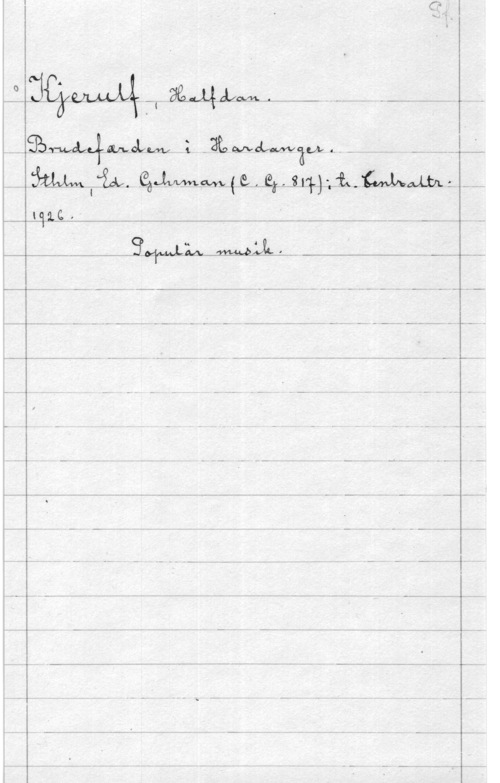 Kjerulf, Halfdan.
Brudefærden i Hardanger.
Sthlm, Ed. Gehrman (C. G. 817); tr. Centraltr.
1926.
Populär musik.